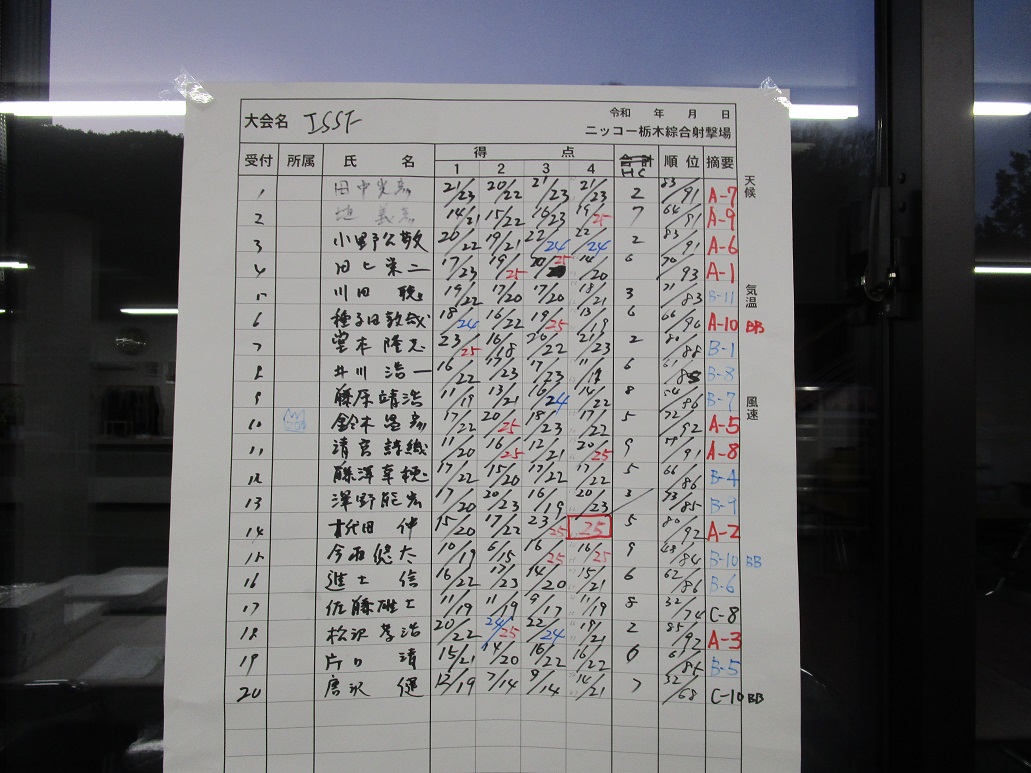 令和 年 月 日
大会名 ISSF
ニッコー栃木綜合射撃場
受付 所属 氏 名 得 点 合計 順位 摘要
1 2 3 4 HC
天候
気温
風速
1 田中 21/23 20/22 21/23 21/23 2 83/91 A-7
2 14/21 15/22 16/23 19/25 7 64/91 A-9
3 小野 敬 20/22 19/21 22/24 22/24 2 83/91 A-6
4 栄二 17/23 19/25 20/25 14/20 6 70/93 A-1
5 川田 聡 19/22 17/20 17/20 18/21 3 71/83 B-11
6 種子田 18/24 16/22 19/25 13/19 6 66/90 A-10 BB
7 堂本 隆 23/25 16/18 20/22 21/23 2 80/88 B-1
8 井川 浩一 16/22 17/23 17/23 6 B-8
9 藤原 靖浩 11/19 13/21 16/24 14/22 8 54/86 B-7
10 鈴木 17/22 20/25 18/23 17/22 5 72/92 A-5
11 清宮 11/20 16/25 12/21 20/25 9 59/91 A-8
12 藤澤 17/22 15/20 17/22 17/22 5 66/86 B-4
13 澤野 17/20 20/23 16/19 20/23 3 73/85 B-9
14 田 伸 15/20 17/22 23/25 25 5 80/92 A-2
15 健太 10/19 6/15 16/25 16/25 9 48/84 B-10 BB
16 進士 信 16/22 17/23 14/20 15/21 6 62/86 B-6
17 佐藤 11/19 11/19 9/17 11/19 8 C-8
18 松沢 孝浩 20/22 24/25 22/24 19/21 2 85/92 A-3
19 清 15/21 14/20 16/22 16/22 6 61/85 B-5
20 唐沢 健 12/19 7/14 9/14 14/21 7 C-10 BB